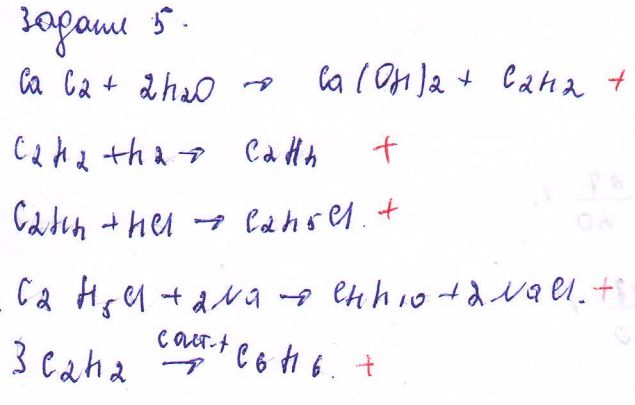 Задание 5.
CaC2 + 2H2O → Ca(OH)2 + C2H2 +
C2H2 + H2 → C2H4 +
C2H4 + HCl → C2H5Cl. +
C2H5Cl + 2Na → C4H10 + 2NaCl. +
3C2H2 → C6H6. +